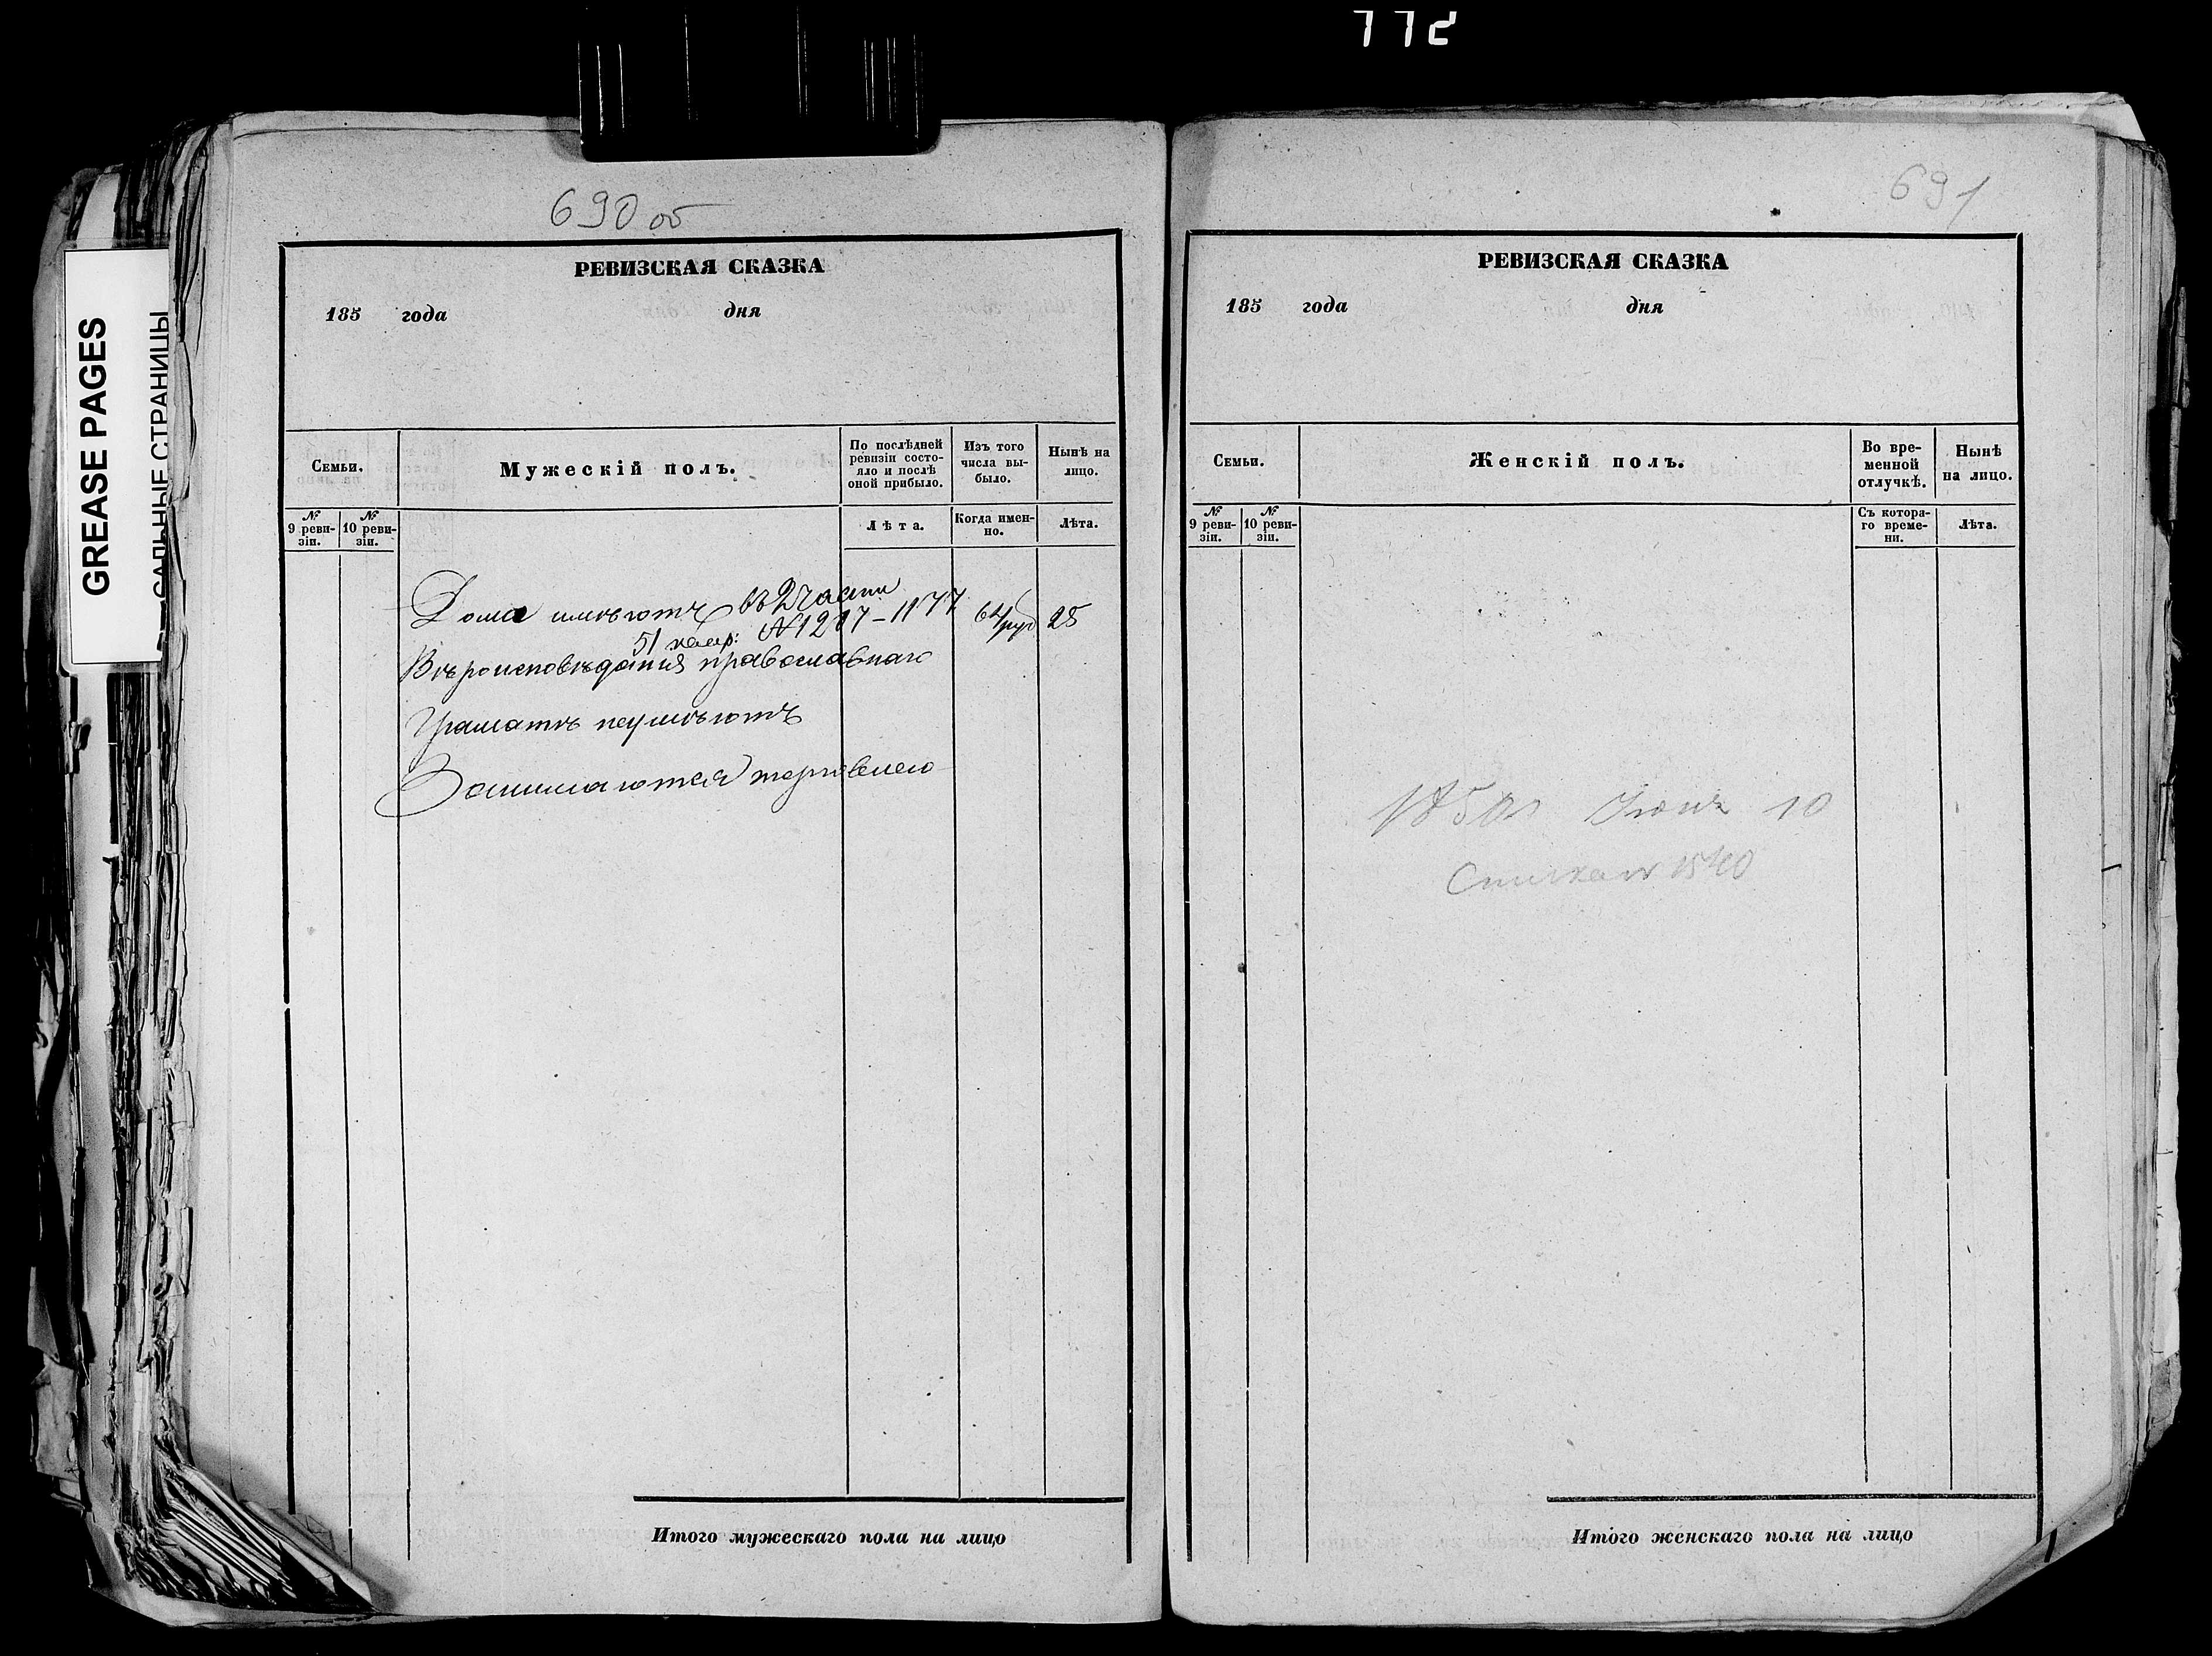 772
GREASE PAGES
САЛЬНЫЕ СТРАНИЦЫ
690 об
РЕВИЗСКАЯ СКАЗКА
185 года дня
Семьи.
Мужескій полъ.
По послѣдней ревизіи состо-
яло и послѣ оной прибыло.
Изъ того числа вы-
было.
Нынѣ на лицо.
№ 9 реви-
зіи.
№ 10 реви-
зіи.
Лѣта.
Когда имен-
но.
Лѣта.
Дома имѣютъ въ 2 части
№ 1217 - 1177
51 квар:
64 руб 25
Вѣроисповѣданія православнаго
Граматѣ неумѣютъ
Занимаются торговлею
Итого мужескаго пола на лицо
691
РЕВИЗСКАЯ СКАЗКА
185 года дня
Семьи.
Женскій полъ.
Во вре-
менной
отлучкѣ.
Нынѣ
на лицо.
№ 9 реви-
зіи.
№ 10 реви-
зіи.
Съ котора-
го време-
ни.
Лѣта.
10
Итого женскаго пола на лицо